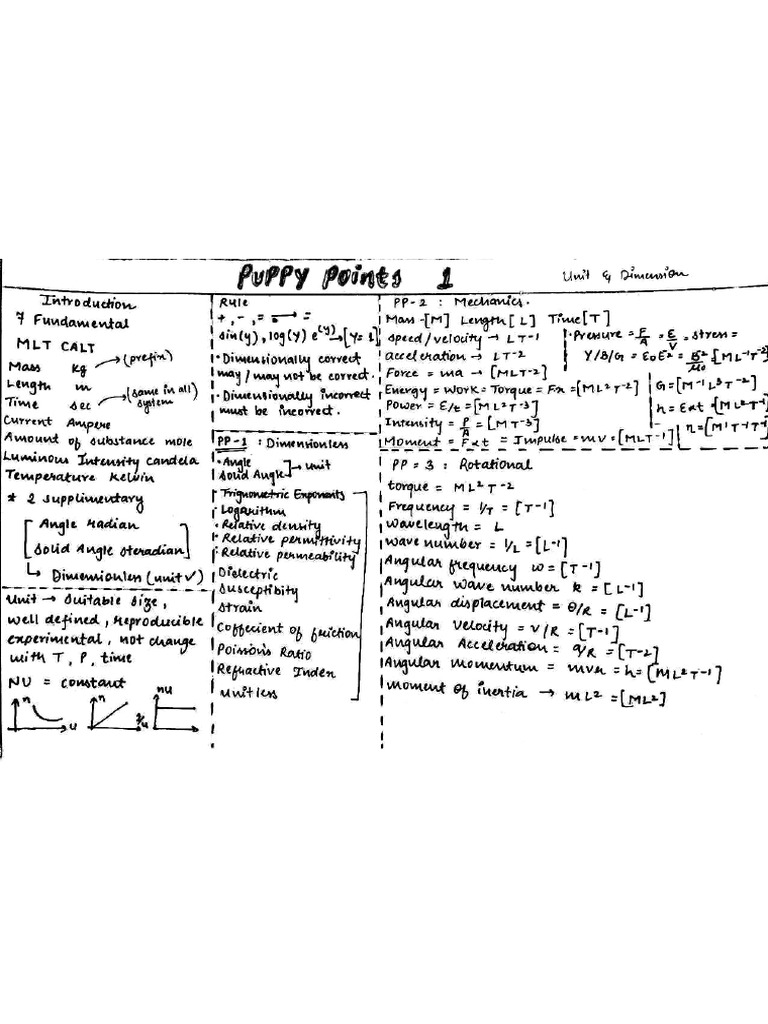 Puppy Points 1
Unit & Dimension
Introduction
7 Fundamental
MLT CALT
Mass kg → (prefix)
Length m
Time sec → (same in all) system
Current Ampere
Amount of substance mole
Luminous Intensity candela
Temperature Kelvin
* 2 supplimentary
[Angle radian
Solid Angle steradian]
↳ Dimensionless (unit ✓)
Unit → suitable size,
well defined, reproducible
experimental, not change
with T, P, time
NU = constant
n u
n 1/u
nu
Rule
+, -, =
sin(y), log(y) e^(y) → [y = 1]
• Dimensionally correct
may / may not be correct.
• Dimensionally incorrect
must be incorrect.
PP-1 : Dimensionless
• Angle
Solid Angle ] → unit
Trignometric Exponents
• Logarithm
• Relative density
• Relative permittivity
• Relative permeability
Dielectric
susceptibity
strain
Coffecient of friction
Poisson's Ratio
Refractive Index
unitless
PP-2 : Mechanics.
Mass-[M] Length[L] Time[T]
speed/velocity → LT-1
acceleration → LT-2
Force = ma → [MLT-2]
Energy = Work = Torque = Fx = [ML²T-2]
Power = E/t = [ML²T-3]
Intensity = P/A = [MT-3]
Moment = F x t = Impulse = mv = [MLT-1]
• Pressure = F/A = E/V = stress =
Y/B/G = E0E² = B²/μ0 = [ML-1T-2
G = [M-1L3T-2]
h = Ext = [ML²T-1
η = [M1T-1T-1
PP = 3 : Rotational
torque = ML²T-2
Frequency = 1/T = [T-1]
Wavelength = L
Wave number = 1/L = [L-1]
Angular frequency w = [T-1]
Angular wave number k = [L-1]
Angular displacement = θ/R = [L-1]
Angular velocity = v/R = [T-1]
Angular Acceleration = a/R = [T-2]
Angular momentum = mvr = h = [ML²T-1]
moment of inertia → mL2 = [ML²]